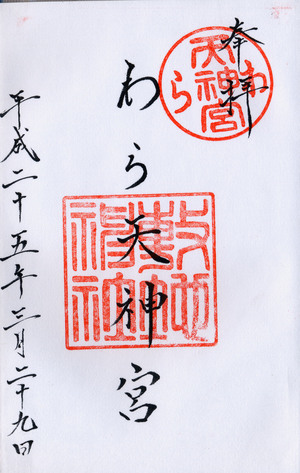 奉拝
わら天神宮
わら天神宮
敷地神社
平成二十五年三月二十九日